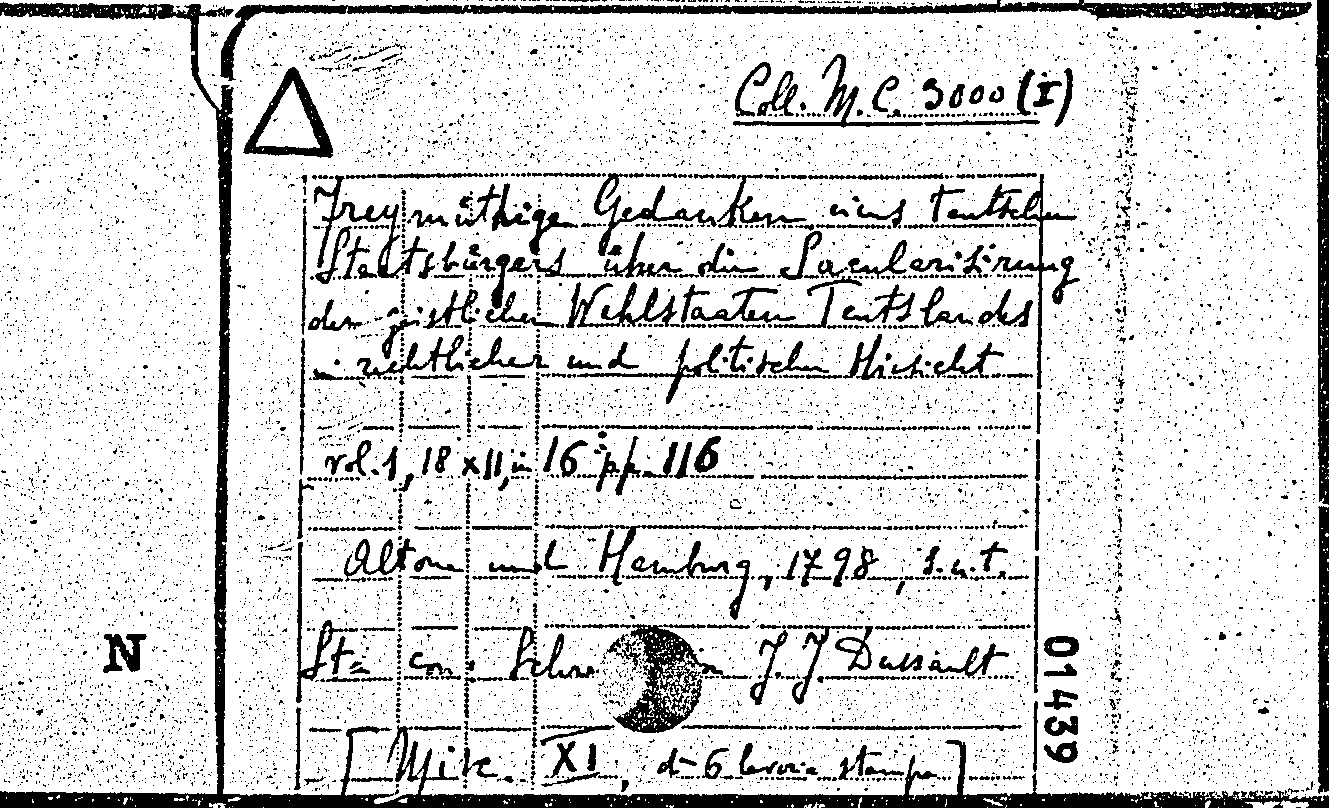 Coll. M.C. 3000 (I)
Freymüthige Gedanken eines teutschen
Staatsbürgers über die Saecularisirung
der geistlichen Wahlstaaten Teutslandes
in rechtlicher und politischer Hisicht
vol. 1, 18 x 11, in 16° pp. 116
Altona und Hamburg, 1798, s.n.t.
Sta con: J. J. Dussault
N
01439
[Misc. XI, di 6 lavori a stampa]